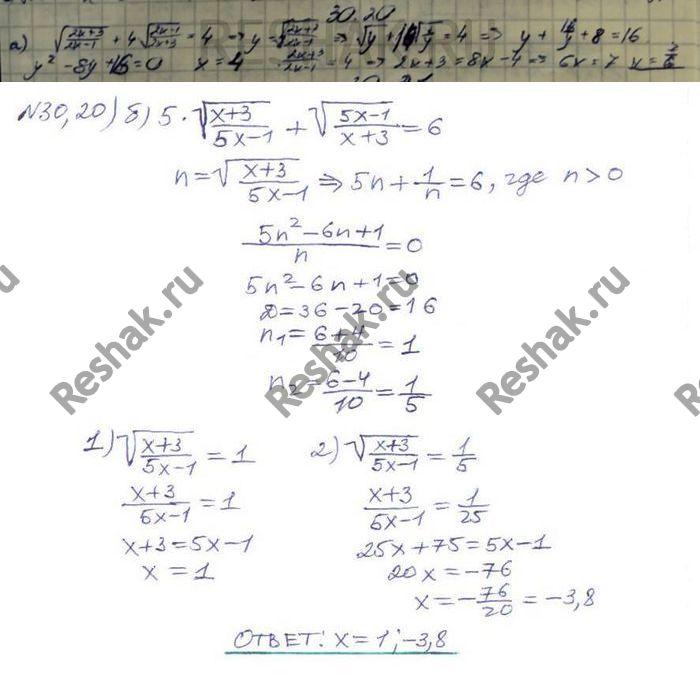 30.20
а) √(2x+3)/(2x-1) + 4√(2x-1)/(2x+3) = 4 → y = (2x+3)/(2x-1) ⇒ √y + = 4 ⇒ y + 16/y + 8 = 16
y² - 8y + 16 = 0 x = 4 (2x+3)/(2x-1) = 4 → 2x+3 = 8x-4 ⇒ 6x = 7 x = 7/6
N30,20) б) 5·√(x+3)/(5x-1) + √(5x-1)/(x+3) = 6
n = √(x+3)/(5x-1) ⇒ 5n + 1/n = 6, где n > 0
(5n²-6n+1)/n = 0
5n²-6n+1=0
D=36-20=16
n₁ = (6+4)/10 = 1
n₂ = (6-4)/10 = 1/5
1) √(x+3)/(5x-1) = 1 2) √(x+3)/(5x-1) = 1/5
(x+3)/(5x-1) = 1 (x+3)/(5x-1) = 1/25
x+3=5x-1 25x+75=5x-1
x = 1 20x=-76
x=-76/20 = -3,8
ОТВЕТ: x=1; -3,8
Reshak.ru
Reshak.ru
Reshak.ru